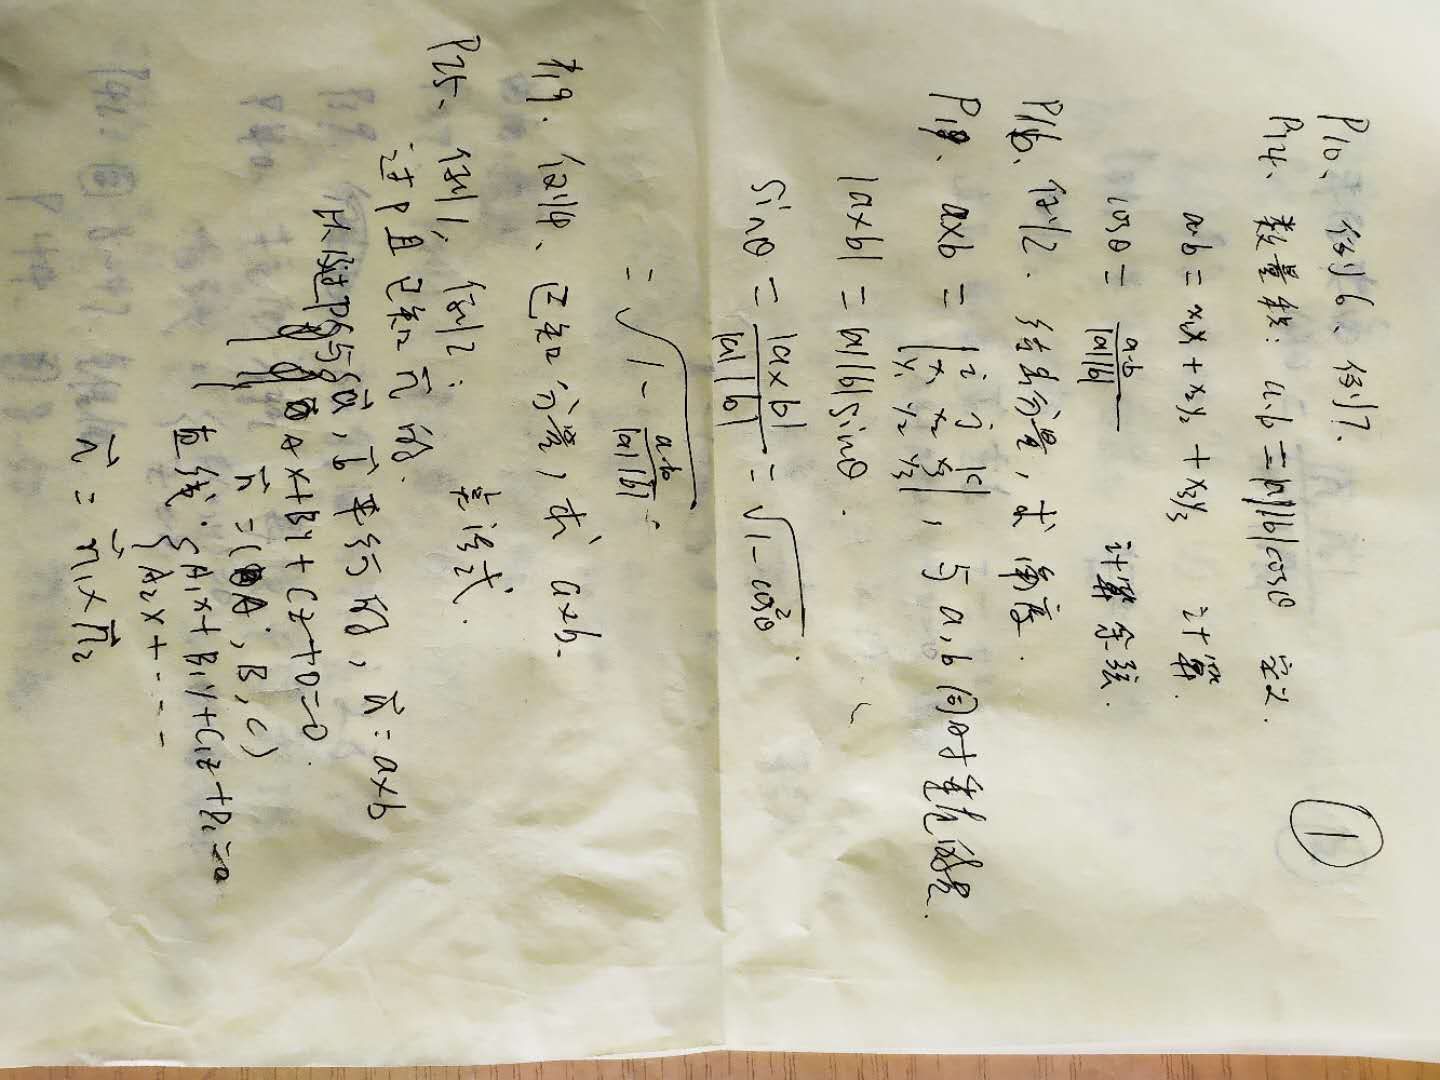 ①
P10、例6、例7.
P14、数量积: a·b = |a||b|cosθ 定义.
a·b = x₁y₁ + x₂y₂ + x₃y₃ 计算.
cosθ = a·b / |a||b| 计算余弦.
P16、例2. 给出分量, 求角度.
P19. a×b = | i j k |
| x₁ x₂ x₃ | , 与a,b同时垂直的
| y₁ y₂ y₃ |
|a×b| = |a||b|sinθ.
sinθ = |a×b| / |a||b| = √(1 - cos²θ)
= √(1 - a·b / |a||b|)
P19. 例4、已知分量, 求 a×b.
P25、例1, 例2: 点法式.
过P且已知n⃗的.
过P与a⃗, b⃗平行的, n⃗ = a×b
Ax+By+Cz+D=0.
n⃗ = (A, B, C)
直线: { A₁x+B₁y+C₁z+D₁=0
A₂x+----
n⃗ = n⃗₁×n⃗₂